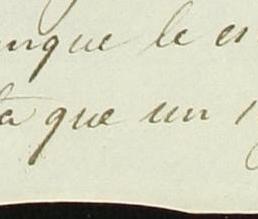 unque le es
a que un